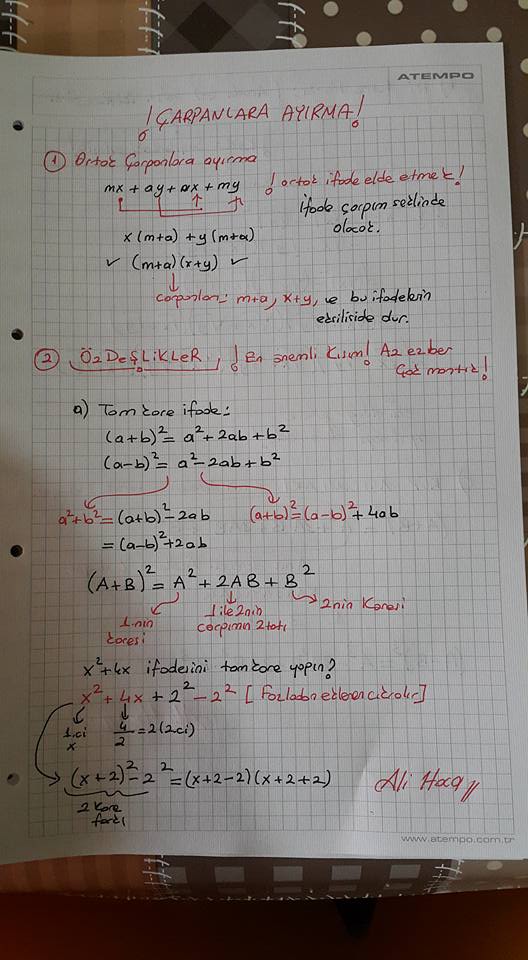 ATEMPO
! ÇARPANLARA AYIRMA !
1 Ortak Çarpanlara ayırma
mx + ay + ax + my ! ortak ifade elde etmek!
ifade çarpım şeklinde
olacak.
x(m+a) + y(m+a)
✓ (m+a)(x+y) ✓
çarpanları: m+a, x+y, ve bu ifadelerin
eksilisidir.
2 ÖZDEŞLİKLER, ! En önemli kısım! Az ezber
Çok mantık!
a) Tam kare ifade:
(a+b)² = a² + 2ab + b²
(a-b)² = a² - 2ab + b²
a²+b² = (a+b)² - 2ab (a+b)² = (a-b)² + 4ab
= (a-b)² + 2ab
(A+B)² = A² + 2AB + B²
1.nin
karesi
1 ile 2nin
çarpımın 2 katı
2nin Karesi
x²+4x ifadesini tam kare yapın?
x² + 4x + 2² - 2² [Fazladan eklenen çıkarılır]
1.ci
x
4/2 = 2 (2.ci)
(x+2)² - 2² = (x+2-2)(x+2+2)
2 kare
farkı
Ali Hoca
www.atempo.com.tr